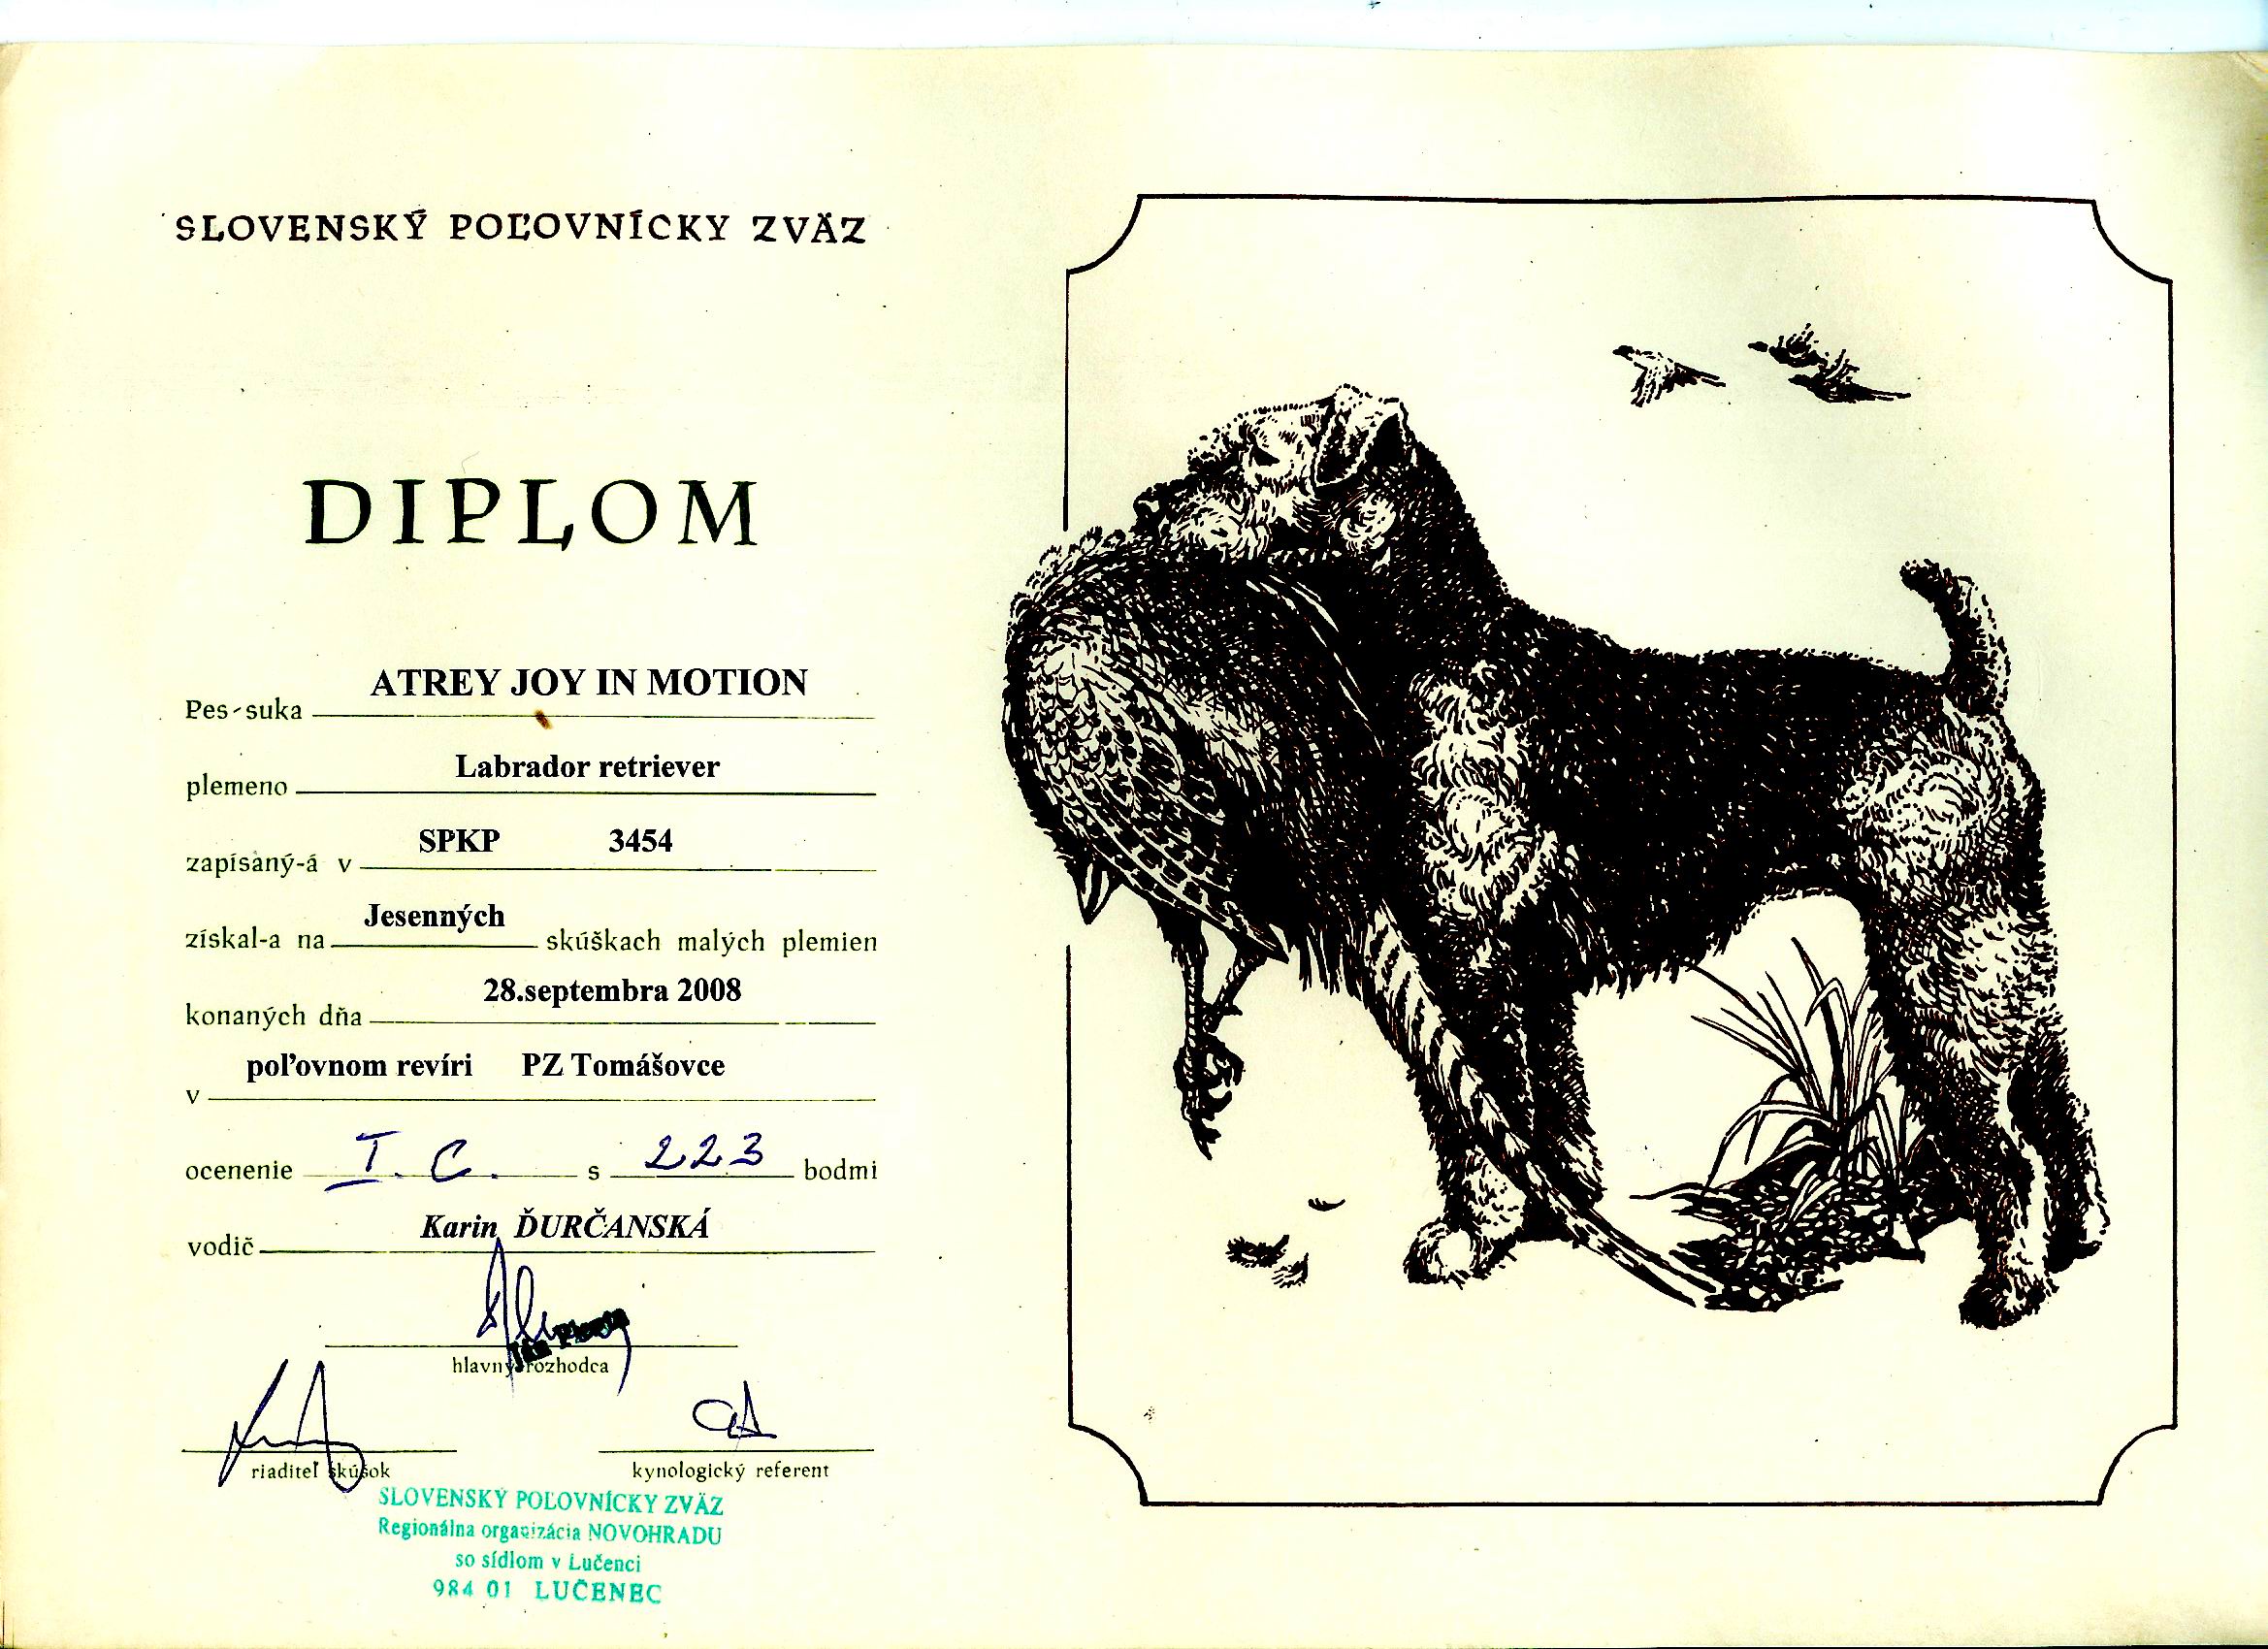 SLOVENSKÝ POĽOVNÍCKY ZVÄZ
DIPLOM
Pes-suka ATREY JOY IN MOTION
plemeno Labrador retriever
zapísaný-á v SPKP 3454
získal-a na Jesenných skúškach malých plemien
konaných dňa 28.septembra 2008
v poľovnom revíri PZ Tomášovce
ocenenie I. C. s 223 bodmi
vodič Karin ĎURČANSKÁ
hlavný rozhodca
riaditeľ skúšok kynologický referent
SLOVENSKÝ POĽOVNÍCKY ZVÄZ
Regionálna organizácia NOVOHRADU
so sídlom v Lučenci
984 01 LUČENEC